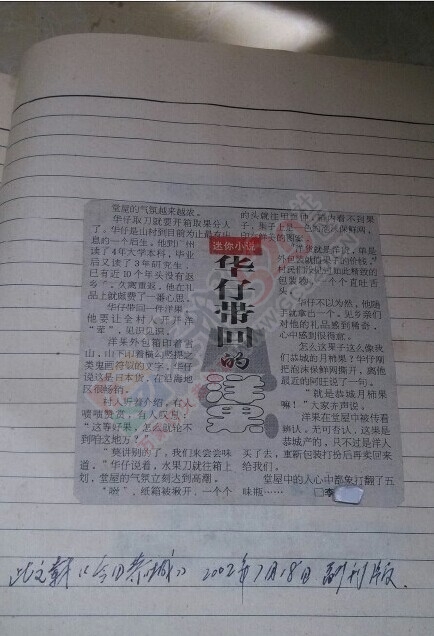 迷你小说
华仔带回的洋果
堂屋的气氛越来越浓。
华仔取刀就要开箱取果分人
了。华仔是山村到目前为止最有出
息的一个后生。他到广州
读了4年大学本科，毕业
后又读了3年研究生，
已有近10个年头没有返
乡了。久离重返，他在礼
品上就颇费了一番心思。
华仔带回一件洋果，
他要让全村人开开洋
“荤”，见识见识。
洋果外包箱印着富
山，山下印着横勾竖撩之
类鬼画符似的文字。华仔
说这是日本货，在沿海地
区很畅销。
村人听着介绍，有人
啧啧赞叹，有人叹息：
“这等好果，怎么就轮不
到咱这地方？”
“莫讲别的了，我们来尝尝味
道。”华仔说着，水果刀就往箱上
划，堂屋的气氛立刻达到高潮。
“呀”，纸箱被揪开，一个个
的头就往里面伸，箱内看不到果
子，果子上是一色的泡沫保鲜网，
价线。”
村民们没见过如此精致的
包装物，一个个直吐舌
头。
华仔不以为然，他随
手就拿出一个。见乡亲们
对他的礼品感到稀奇，
心中感到很得意。
怎么这果子这么像我
们恭城的月柿果？华仔刚
把泡沫保鲜网撕开，离他
最近的阿旺说了一句。
“就是恭城月柿果
嘛！”大家齐声说。
洋果在堂屋中被传着
辨认。无可否认，这果是
恭城产的，只不过是洋人
买了去，重新包装打扮后再卖回来
给我们。
堂屋中的人心中都象打翻了五
味瓶……
□李
此文载《今日恭城》2002年7月18日副刊版.